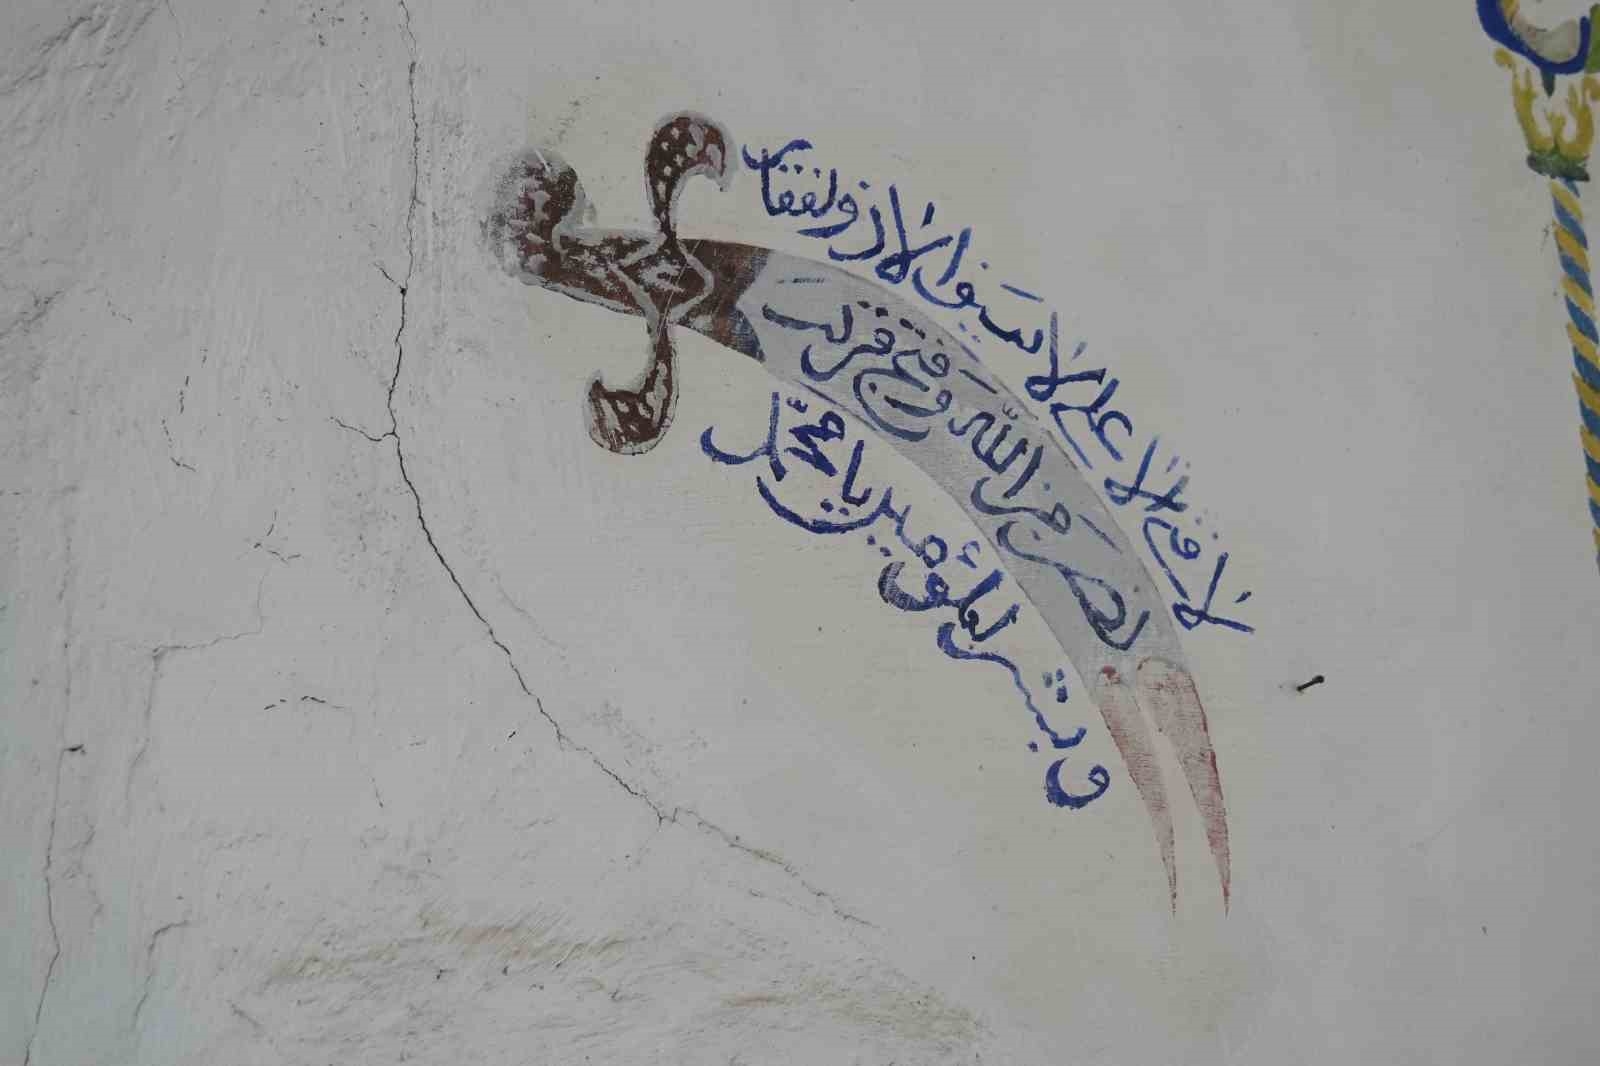 لا فتى الا على لا سيف الا ذولفقار
نصر من الله وفتح قريب
وبشر لمؤمنين يا محمد